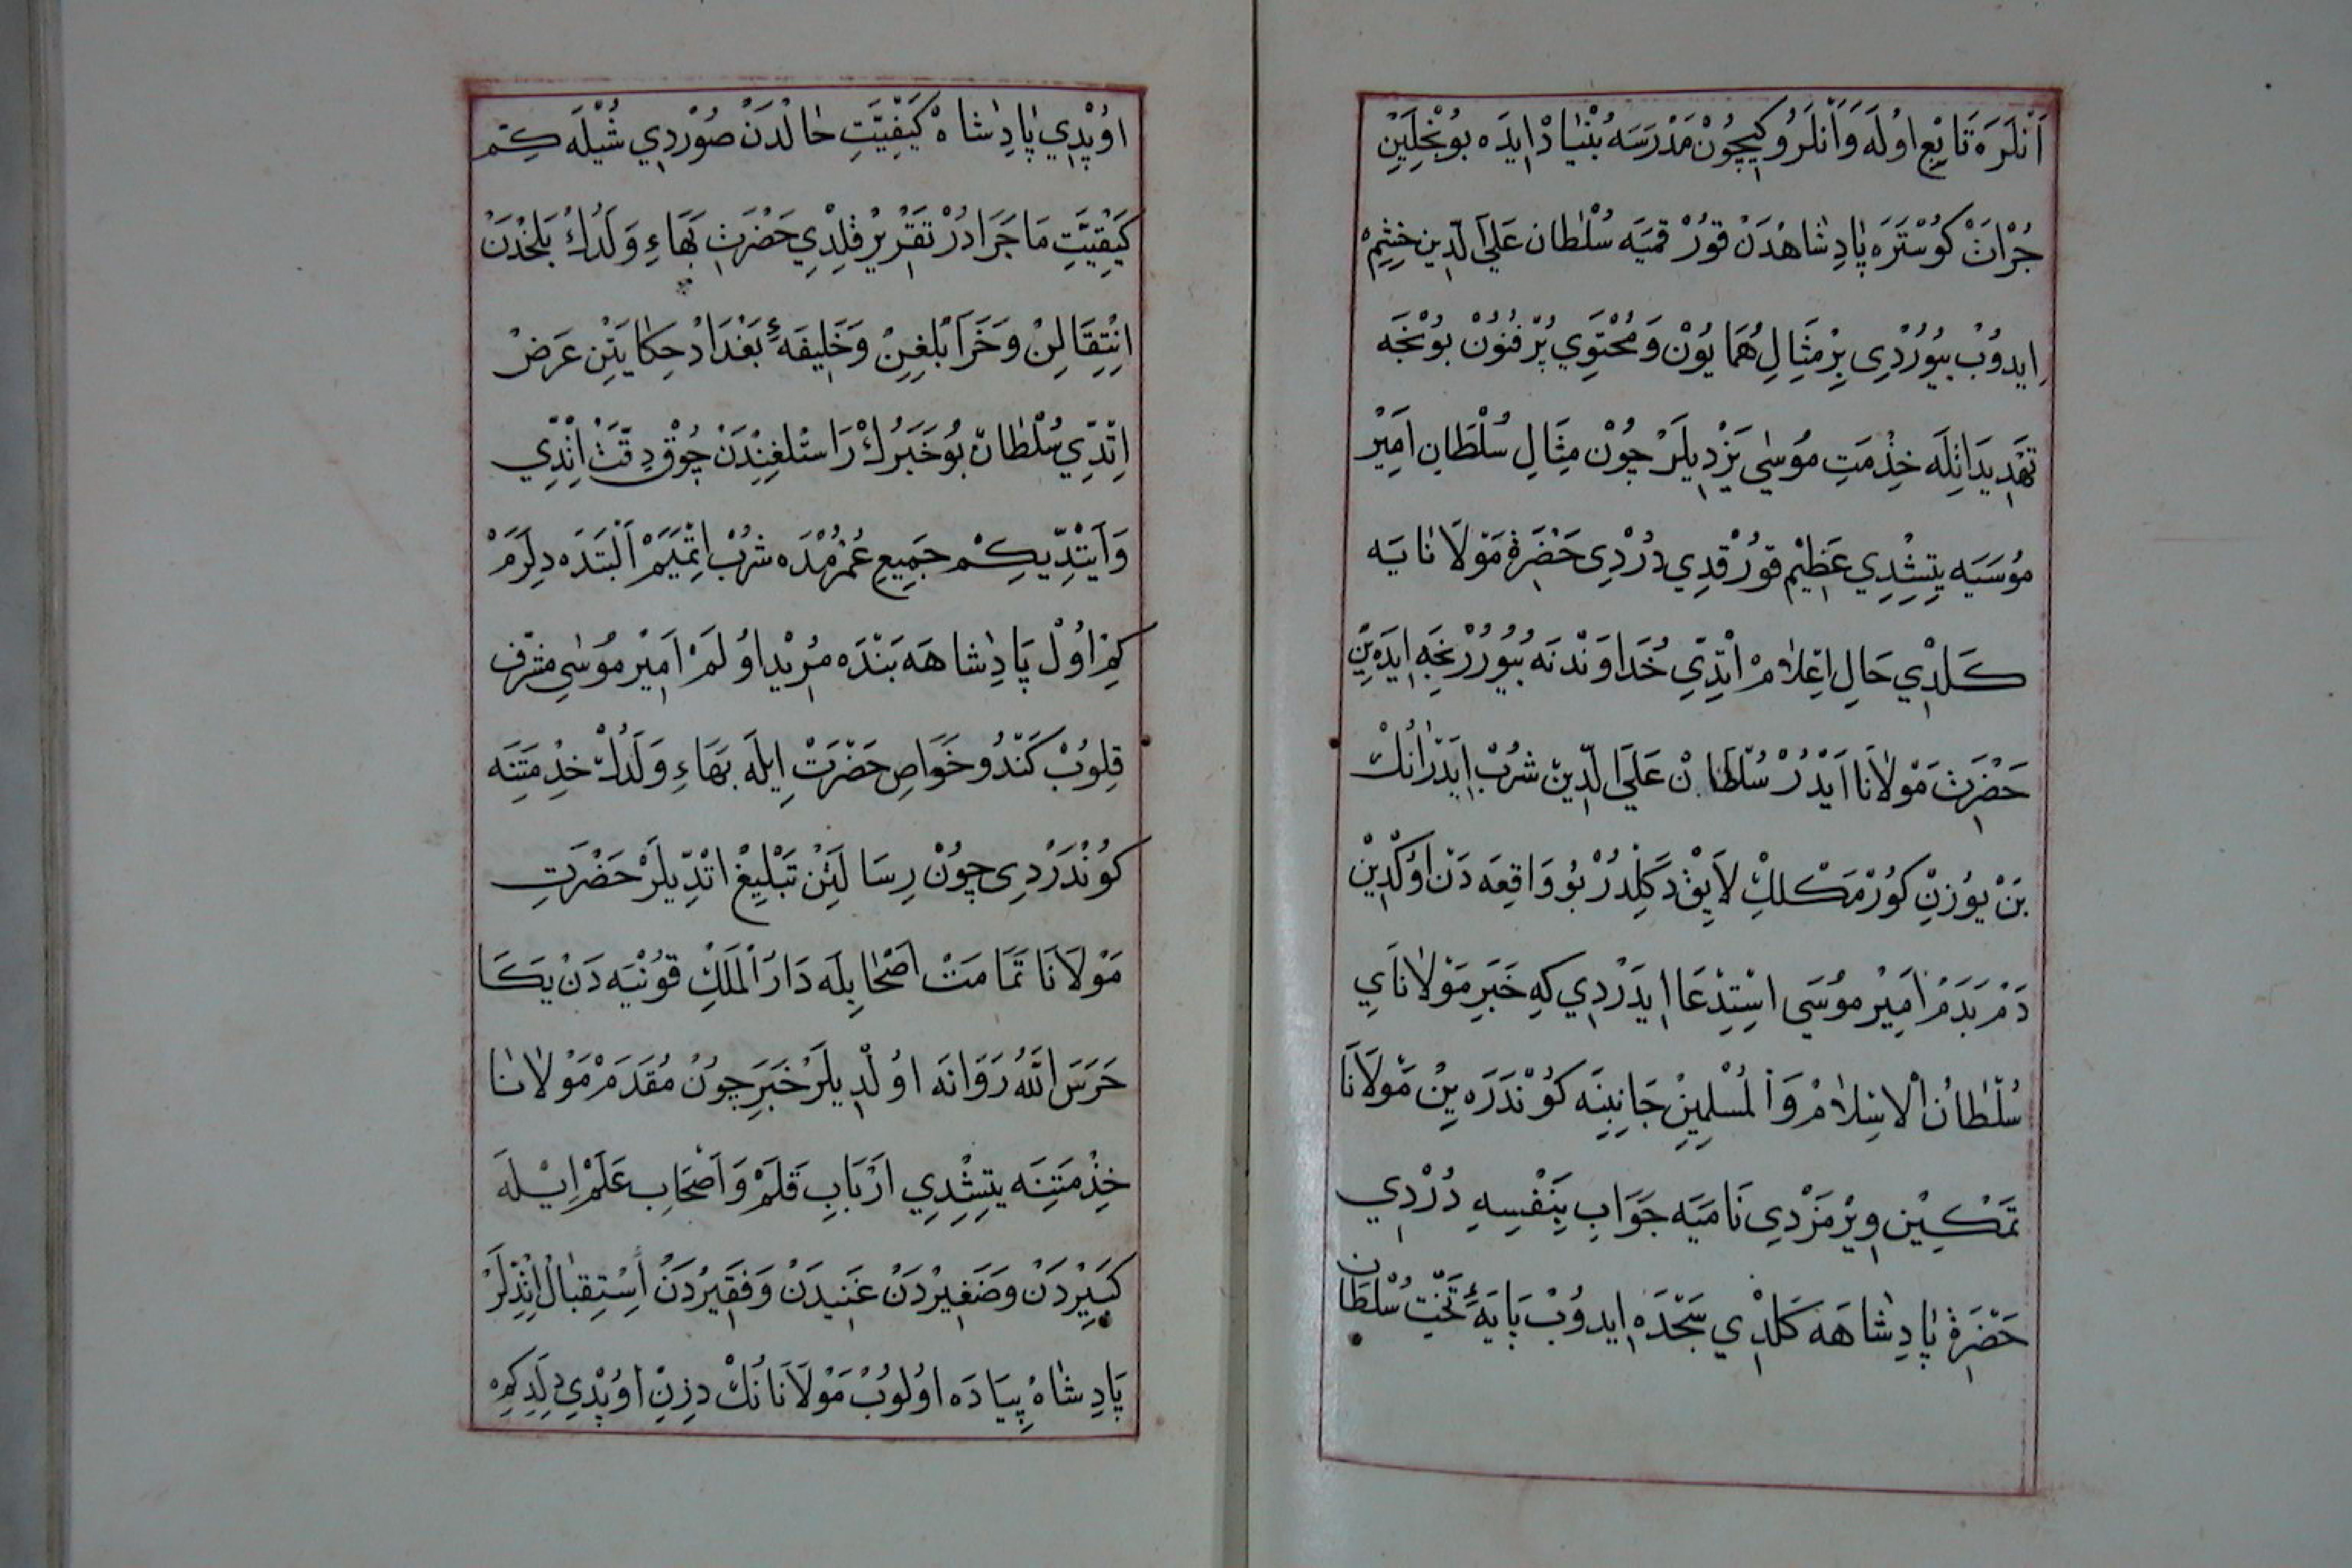 اَنْلَرَه تَابِعِ اوُلَه وَاَنْلَرُوكِيچُونْ مَدْرَسَه بُنْيَادْ ايِدَه بوُنْجِلَيِنْ
جُرْاَتْ كوُسْتَرَه پَادِشَاهْدَنْ قوُرْقمَيَه سُلْطَان عَلَيَ الدّيِن خِشِمْ
ايِدوُبْ بيُوُرْدِى بِرْمِثَالِ هُمَايوُنْ وَمُحْتَوِي بُرْفُنوُنْ بوُنْجَه
تَهْدِيدَاتِلَه خِدْمَتِ موُسٰى يَزْدِيلَرْ چوُنْ مِثَالِ سُلْطَانِ اَمِيْر
موُسَيَه يِتِشْدِي عَظِيْم قوُرْقدِي دُرْدِى حَضْرَةِ مَوْلَانَايَه
كَلْدِي حَالِ اعِلَامْ اتْدِّي خُدَاوَنْدنَه بُيوُرُرْنجَه ايِدَيِنْ
حَضْرَتِ مَوْلَانَا اَيْدُرْ سُلْطَانْ عَلَيَ الدّيِنْ شُرْبْ ايِدَرْانُكْ
بَنْ يوُزنِ كوُرْمَكْلكِ لاَيِقْ دَكِلْدُرْ بوُ وَاقِعَه دَنْ اوُكْدِيْن
دَمْ بَدَمْ اَمِيْر موُسَى اسْتِدْعَا ايِدَرْدِي كِه خَبَرِ مَوْلَانَايِ
سُلْطَانُ الْاسِْلَامْ وَالْمُسْلِمِيْنْ جَانِبِنَه كوُنْدَرَه يِنْ مَوْلَانَا
تَمْكِيْن وِيْرْمَزْدِي نَامَيَه جَوَابِ بِنَفْسِهِ دُرْدِي
حَضْرَةِ پَادِشَاهَه كَلْدِي سَجْدَه ايِدوُبْ پَايَهءِ تَخْتِ سُلْطَان
اوُپْدِي پَادِشَاهْ كَيْفِيَّتِ حَالْدَنْ صوُرْدِي شُيْلَه كِمْ
كَيْفِيَّتِ مَاجَرَادُرْ تَقْرِيرْ قِلْدِي حَضْرَتِ بَهَاءِ وَلَدُكْ بَلخْدَنْ
اِنْتِقَالِنْ وَخَرَابْلِغِنْ وَخَلِيفَهءِ بَغْدَادْ حِكَايَتِنْ عَرَضْ
اِتّدِي سُلْطَانْ بوُ خَبَرُكْ رَاسْتْلغِنْدَنْ چُوْق دِقّتْ اتْدِّي
وَاَيْتْدِّي كِمْ جَمِيعِ عُمْرُمْدَه شُرْبْ اتِْمَيَمْ اَلْبَتَدَه دِلَرَمْ
كِمْ اوُلْ پَادِشَاهَه بَنْدَه مُرِيْد اوُلَمْ اَمِيْر موُسٰى مُشَرّف
قِلوُبْ كَنْدُو خَوَاصِ حَضْرَتْ اِيلَه بَهَاءِ وَلَدُكْ خِدْمَتِنَه
كوُنْدَرْدِى چوُنْ رِسَالَتِنْ تَبْلِيِغْ اتْدِّيلَرْ حَضْرَتِ
مَوْلَانَا تَمَامَتْ اَصْحَابِلَه دَارَالْمَلَكِ قوُنْيَه دَنْ يَكَا
حَرَسَ اللّهُ رَوَانَه اوُلْدِيلَرْ خَبَرِ چوُنْ مَقْدَمْ مَوْلَانَا
خِدْمَتِنَه يِتِشْدِي اَرْبَابِ قَلَمْ وَاَصْحَابِ عَلَمْ اِيْلَه
كَبِيْرْدَنْ وَصَغِيرْدَنْ غَنِيدَنْ وَفَقِيرْدَنْ اِسْتِقْبَالْ اِتّدِلَرْ
پَادِشَاهْ پِيَادَه اوُلوُبْ مَوْلَانَانُكْ دِزِنْ اوُپْدِي دِلَدِكِمْ